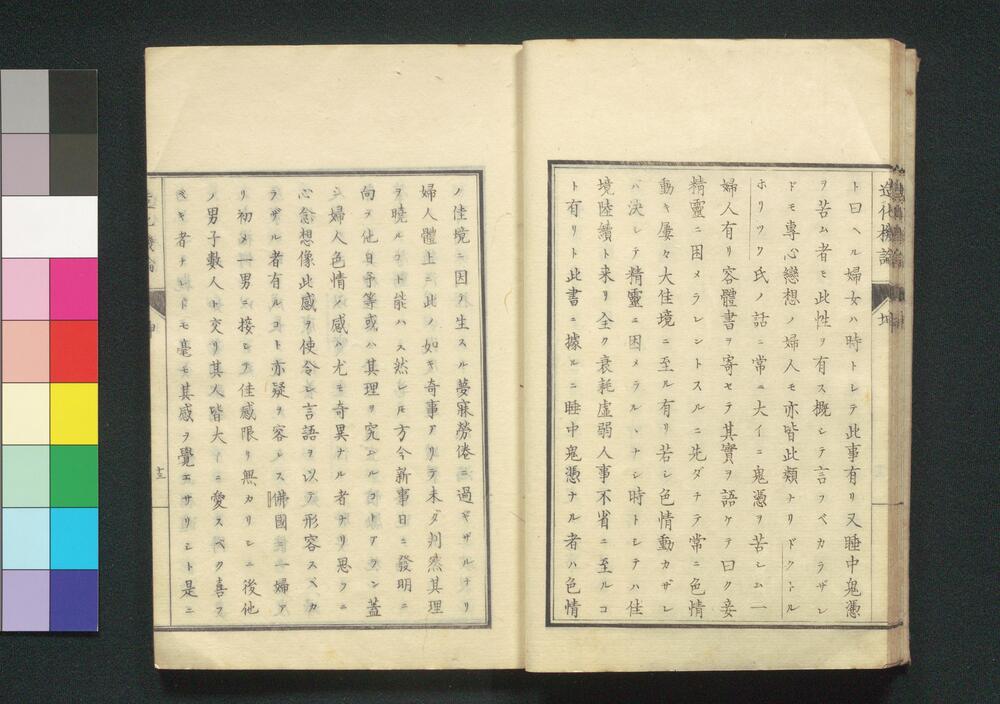 造化機論
坤
ト曰ヘル婦女ハ時トシテ此事有リ又睡中鬼憑
ヲ苦ム者モ此性ヲ有ス概シテ言フベカラザレ
ドモ專心戀想ノ婦人モ亦皆此類ナリドクトル
ホリック氏ノ話ニ常ニ大イニ鬼憑ヲ苦シム一
婦人有リ容體書ヲ寄セテ其實ヲ語ケテ曰ク妾
精靈ニ困メラレントスルニ先ダチテ常ニ色情
動キ屢々大佳境ニ至ル有リ若シ色情動カザレ
バ決シテ精靈ニ困メラルヽナシ時トシテハ佳
境陸續ト来リ全ク衰耗虚弱人事不省ニ至ルコ
ト有リト此書ニ據ルニ睡中鬼憑ナル者ハ色情
ノ佳境ニ因ヲ生スル夢寐勞倦ニ過ギザルナリ
婦人體上ニ此ノ如キ奇事アリテ未ダ判然其理
ヲ曉ルコト能ハス然レ𪜈方今新事日ニ發明ニ
向ヲ他日予等或ハ其理リ究ムルコトアラン蓋
シ婦人色情ノ感ハ尤モ奇異ナル者ナリ思フニ
心念想像此感ヲ使令シ言語ヲ以テ形容スベカ
ラザル者有ルコト亦疑ヲ容レス佛國ニ一婦ア
リ初メ一男ニ接シテ佳感限リ無カリシニ後他
ノ男子數人ト交リ其人皆大イニ愛スベク喜フ
ベキ者ナレドモ毫モ其感ヲ覺エサリシト是ニ
坤
十三